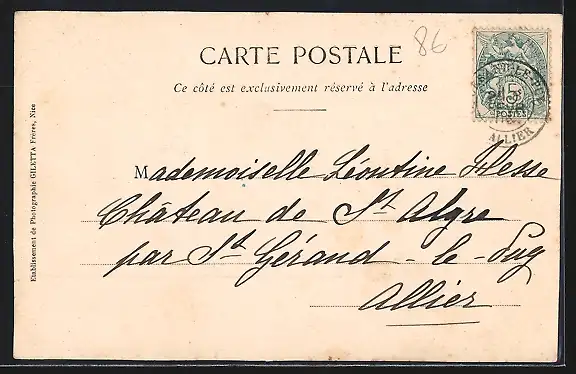 86
CARTE POSTALE
Ce côté est exclusivement réservé à l'adresse
5
POSTES
ALLIER
Mademoiselle Léontine
Château de St Algre
par St Gérand-le-Puy
Allier
Etablissement de Photographie GILETTA Frères, Nice